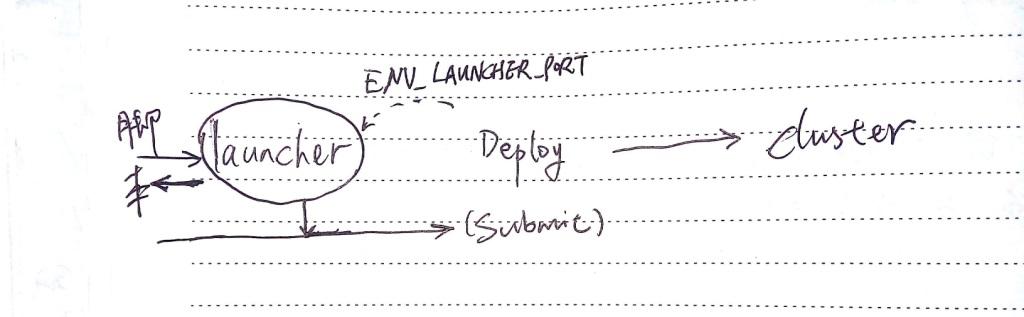 ENV_LAUNCHER_PORT
launcher Deploy cluster
(Submit)